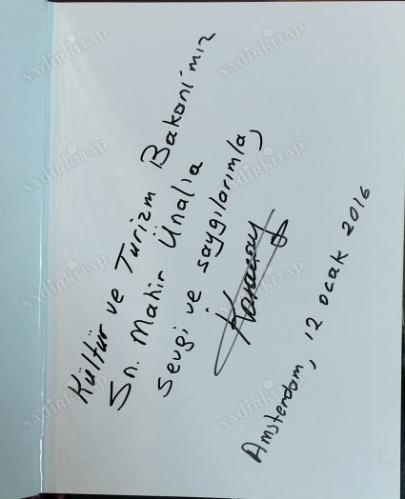 Kültür ve Turizm Bakanı'mız
Sn. Mahir Ünal'a
sevgi ve saygılarımla,
Amsterdam, 12 ocak 2016
NADİRKİTAP